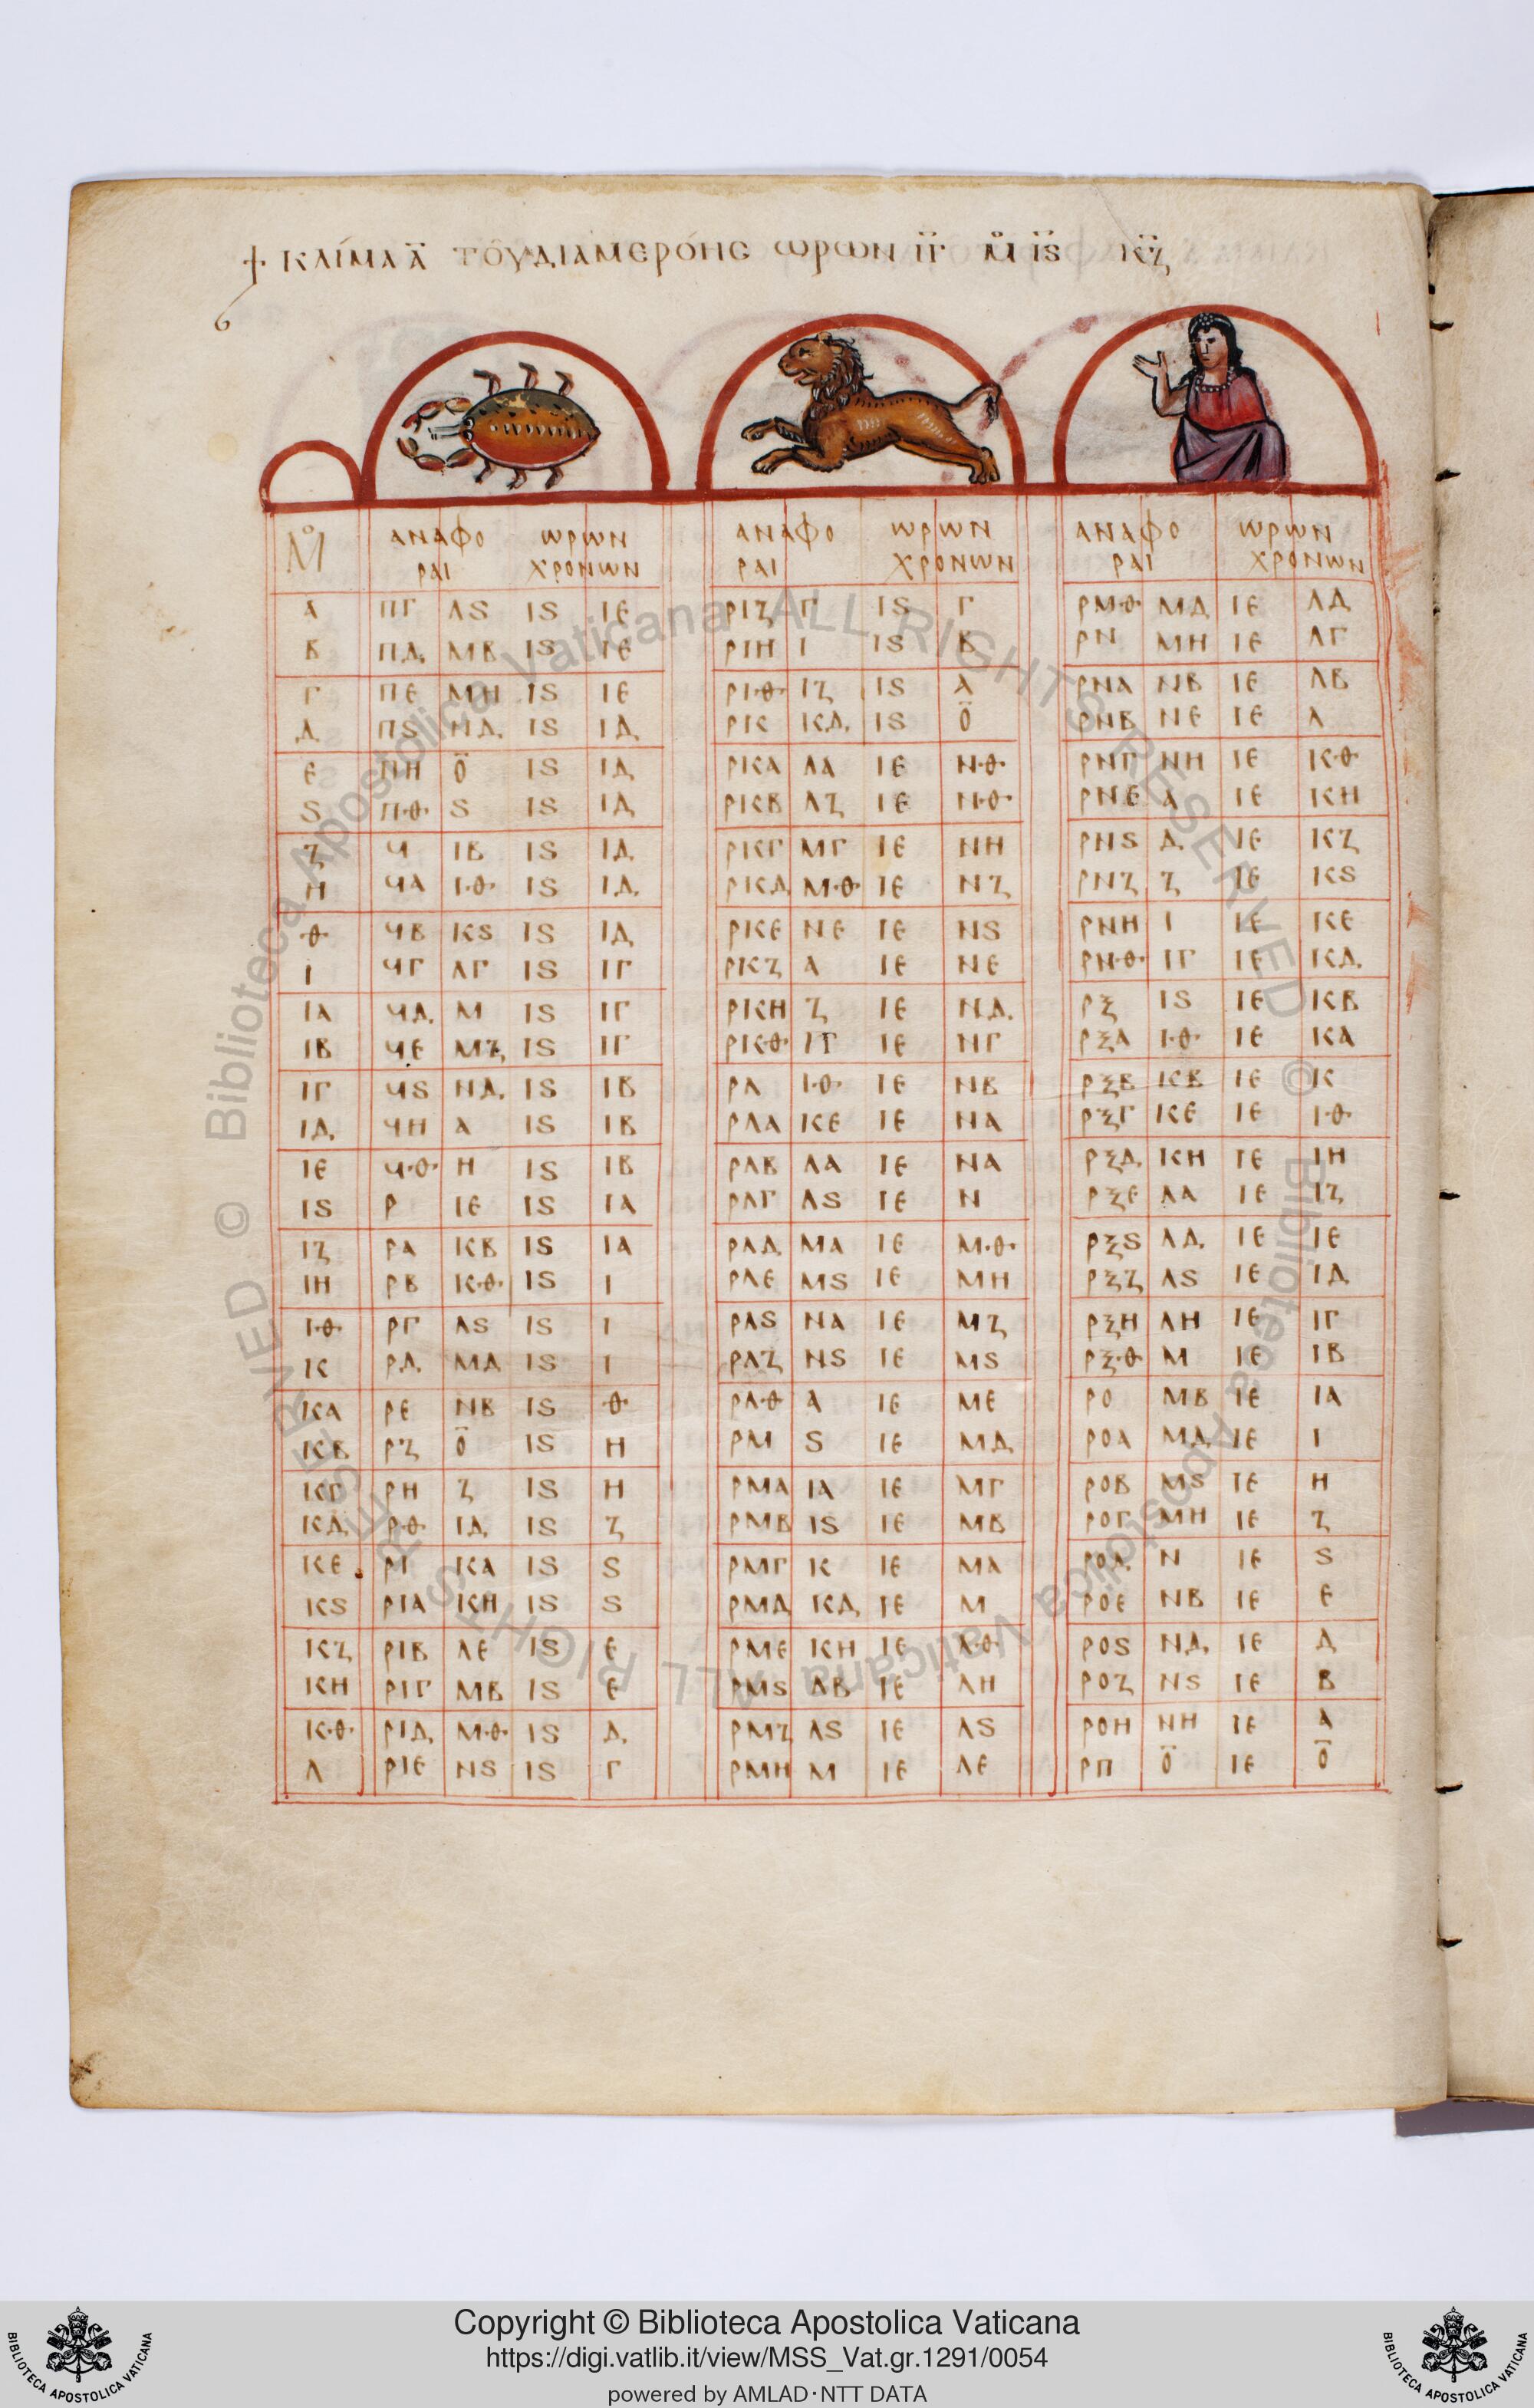 ΚΛΊΜΑ Α̈ ΤΟΥ͂ ΔΙΑΜΕΡΌΗϹ ωΡωΝ ΙΓ̈ Μ̊ ΙϚ̈ ΚΖ̈
Μ̊ ΑΝΑΦΟ ωΡωΝ ΑΝΑΦΟ ωΡωΝ ΑΝΑΦΟ ωΡωΝ
ΡΑΙ ΧΡΟΝωΝ ΡΑΙ ΧΡΟΝωΝ ΡΑΙ ΧΡΟΝωΝ
Α ΠΓ ΛϚ ΙϚ ΙΕ ΡΙΖ Γ ΙϚ Γ ΡΜΘ ΜΔ ΙΕ ΛΔ
Β ΠΔ ΜΒ ΙϚ ΙΕ ΡΙΗ Ι ΙϚ Β ΡΝ ΜΗ ΙΕ ΛΓ
Γ ΠΕ ΜΗ ΙϚ ΙΕ ΡΙΘ ΙΖ ΙϚ Α ΡΝΑ ΝΒ ΙΕ ΛΒ
Δ ΠϚ ΝΔ ΙϚ ΙΔ ΡΚ ΚΔ ΙϚ Ο̈ ΡΝΒ ΝΕ ΙΕ Λ
Ε ΠΗ Ο̈ ΙϚ ΙΔ ΡΚΑ ΛΑ ΙΕ ΝΘ ΡΝΓ ΝΗ ΙΕ ΚΘ
Ϛ ΠΘ Ϛ ΙϚ ΙΔ ΡΚΒ ΛΖ ΙΕ ΝΘ ΡΝΕ Α ΙΕ ΚΗ
Ζ Ϟ ΙΒ ΙϚ ΙΔ ΡΚΓ ΜΓ ΙΕ ΝΗ ΡΝϚ Δ ΙΕ ΚΖ
Η ϞΑ ΙΘ ΙϚ ΙΔ ΡΚΔ ΜΘ ΙΕ ΝΖ ΡΝΖ Ζ ΙΕ ΚϚ
Θ ϞΒ ΚϚ ΙϚ ΙΔ ΡΚΕ ΝΕ ΙΕ ΝϚ ΡΝΗ Ι ΙΕ ΚΕ
Ι ϞΓ ΛΓ ΙϚ ΙΓ ΡΚΖ Α ΙΕ ΝΕ ΡΝΘ ΙΓ ΙΕ ΚΔ
ΙΑ ϞΔ Μ ΙϚ ΙΓ ΡΚΗ Ζ ΙΕ ΝΔ ΡΞ ΙϚ ΙΕ ΚΒ
ΙΒ ϞΕ ΜΖ ΙϚ ΙΓ ΡΚΘ ΙΓ ΙΕ ΝΓ ΡΞΑ ΙΘ ΙΕ ΚΑ
ΙΓ ϞϚ ΝΔ ΙϚ ΙΒ ΡΛ ΙΘ ΙΕ ΝΒ ΡΞΒ ΚΒ ΙΕ Κ
ΙΔ ϞΗ Α ΙϚ ΙΒ ΡΛΑ ΚΕ ΙΕ ΝΑ ΡΞΓ ΚΕ ΙΕ ΙΘ
ΙΕ ϞΘ Η ΙϚ ΙΒ ΡΛΒ ΛΑ ΙΕ ΝΑ ΡΞΔ ΚΗ ΙΕ ΙΗ
ΙϚ Ρ ΙΕ ΙϚ ΙΑ ΡΛΓ ΛϚ ΙΕ Ν ΡΞΕ ΛΑ ΙΕ ΙΖ
ΙΖ ΡΑ ΚΒ ΙϚ ΙΑ ΡΛΔ ΜΑ ΙΕ ΜΘ ΡΞϚ ΛΔ ΙΕ ΙΕ
ΙΗ ΡΒ ΚΘ ΙϚ Ι ΡΛΕ ΜϚ ΙΕ ΜΗ ΡΞΖ ΛϚ ΙΕ ΙΔ
ΙΘ ΡΓ ΛϚ ΙϚ Ι ΡΛϚ ΝΑ ΙΕ ΜΖ ΡΞΗ ΛΗ ΙΕ ΙΓ
Κ ΡΔ ΜΔ ΙϚ Ι ΡΛΖ ΝϚ ΙΕ ΜϚ ΡΞΘ Μ ΙΕ ΙΒ
ΚΑ ΡΕ ΝΒ ΙϚ Θ ΡΛΘ Α ΙΕ ΜΕ ΡΟ ΜΒ ΙΕ ΙΑ
ΚΒ ΡΖ Ο̈ ΙϚ Η ΡΜ Ϛ ΙΕ ΜΔ ΡΟΑ ΜΔ ΙΕ Ι
ΚΓ ΡΗ Ζ ΙϚ Η ΡΜΑ ΙΑ ΙΕ ΜΓ ΡΟΒ ΜϚ ΙΕ Η
ΚΔ ΡΘ ΙΔ ΙϚ Ζ ΡΜΒ ΙϚ ΙΕ ΜΒ ΡΟΓ ΜΗ ΙΕ Ζ
ΚΕ ΡΙ ΚΑ ΙϚ Ϛ ΡΜΓ Κ ΙΕ ΜΑ ΡΟΔ Ν ΙΕ Ϛ
ΚϚ ΡΙΑ ΚΗ ΙϚ Ϛ ΡΜΔ ΚΔ ΙΕ Μ ΡΟΕ ΝΒ ΙΕ Ε
ΚΖ ΡΙΒ ΛΕ ΙϚ Ε ΡΜΕ ΚΗ ΙΕ ΛΘ ΡΟϚ ΝΔ ΙΕ Δ
ΚΗ ΡΙΓ ΜΒ ΙϚ Ε ΡΜϚ ΛΒ ΙΕ ΛΗ ΡΟΖ ΝϚ ΙΕ Β
ΚΘ ΡΙΔ ΜΘ ΙϚ Δ ΡΜΖ ΛϚ ΙΕ ΛϚ ΡΟΗ ΝΗ ΙΕ Α
Λ ΡΙΕ ΝϚ ΙϚ Γ ΡΜΗ Μ ΙΕ ΛΕ ΡΠ Ο̈ ΙΕ Ο̈
© Biblioteca Apostolica Vaticana ALL RIGHTS RESERVED © Biblioteca Apostolica Vaticana ALL RIGHTS RESERVED
Copyright © Biblioteca Apostolica Vaticana
https://digi.vatlib.it/view/MSS_Vat.gr.1291/0054
powered by AMLAD·NTT DATA
BIBLIOTECA APOSTOLICA VATICANA
BIBLIOTECA APOSTOLICA VATICANA